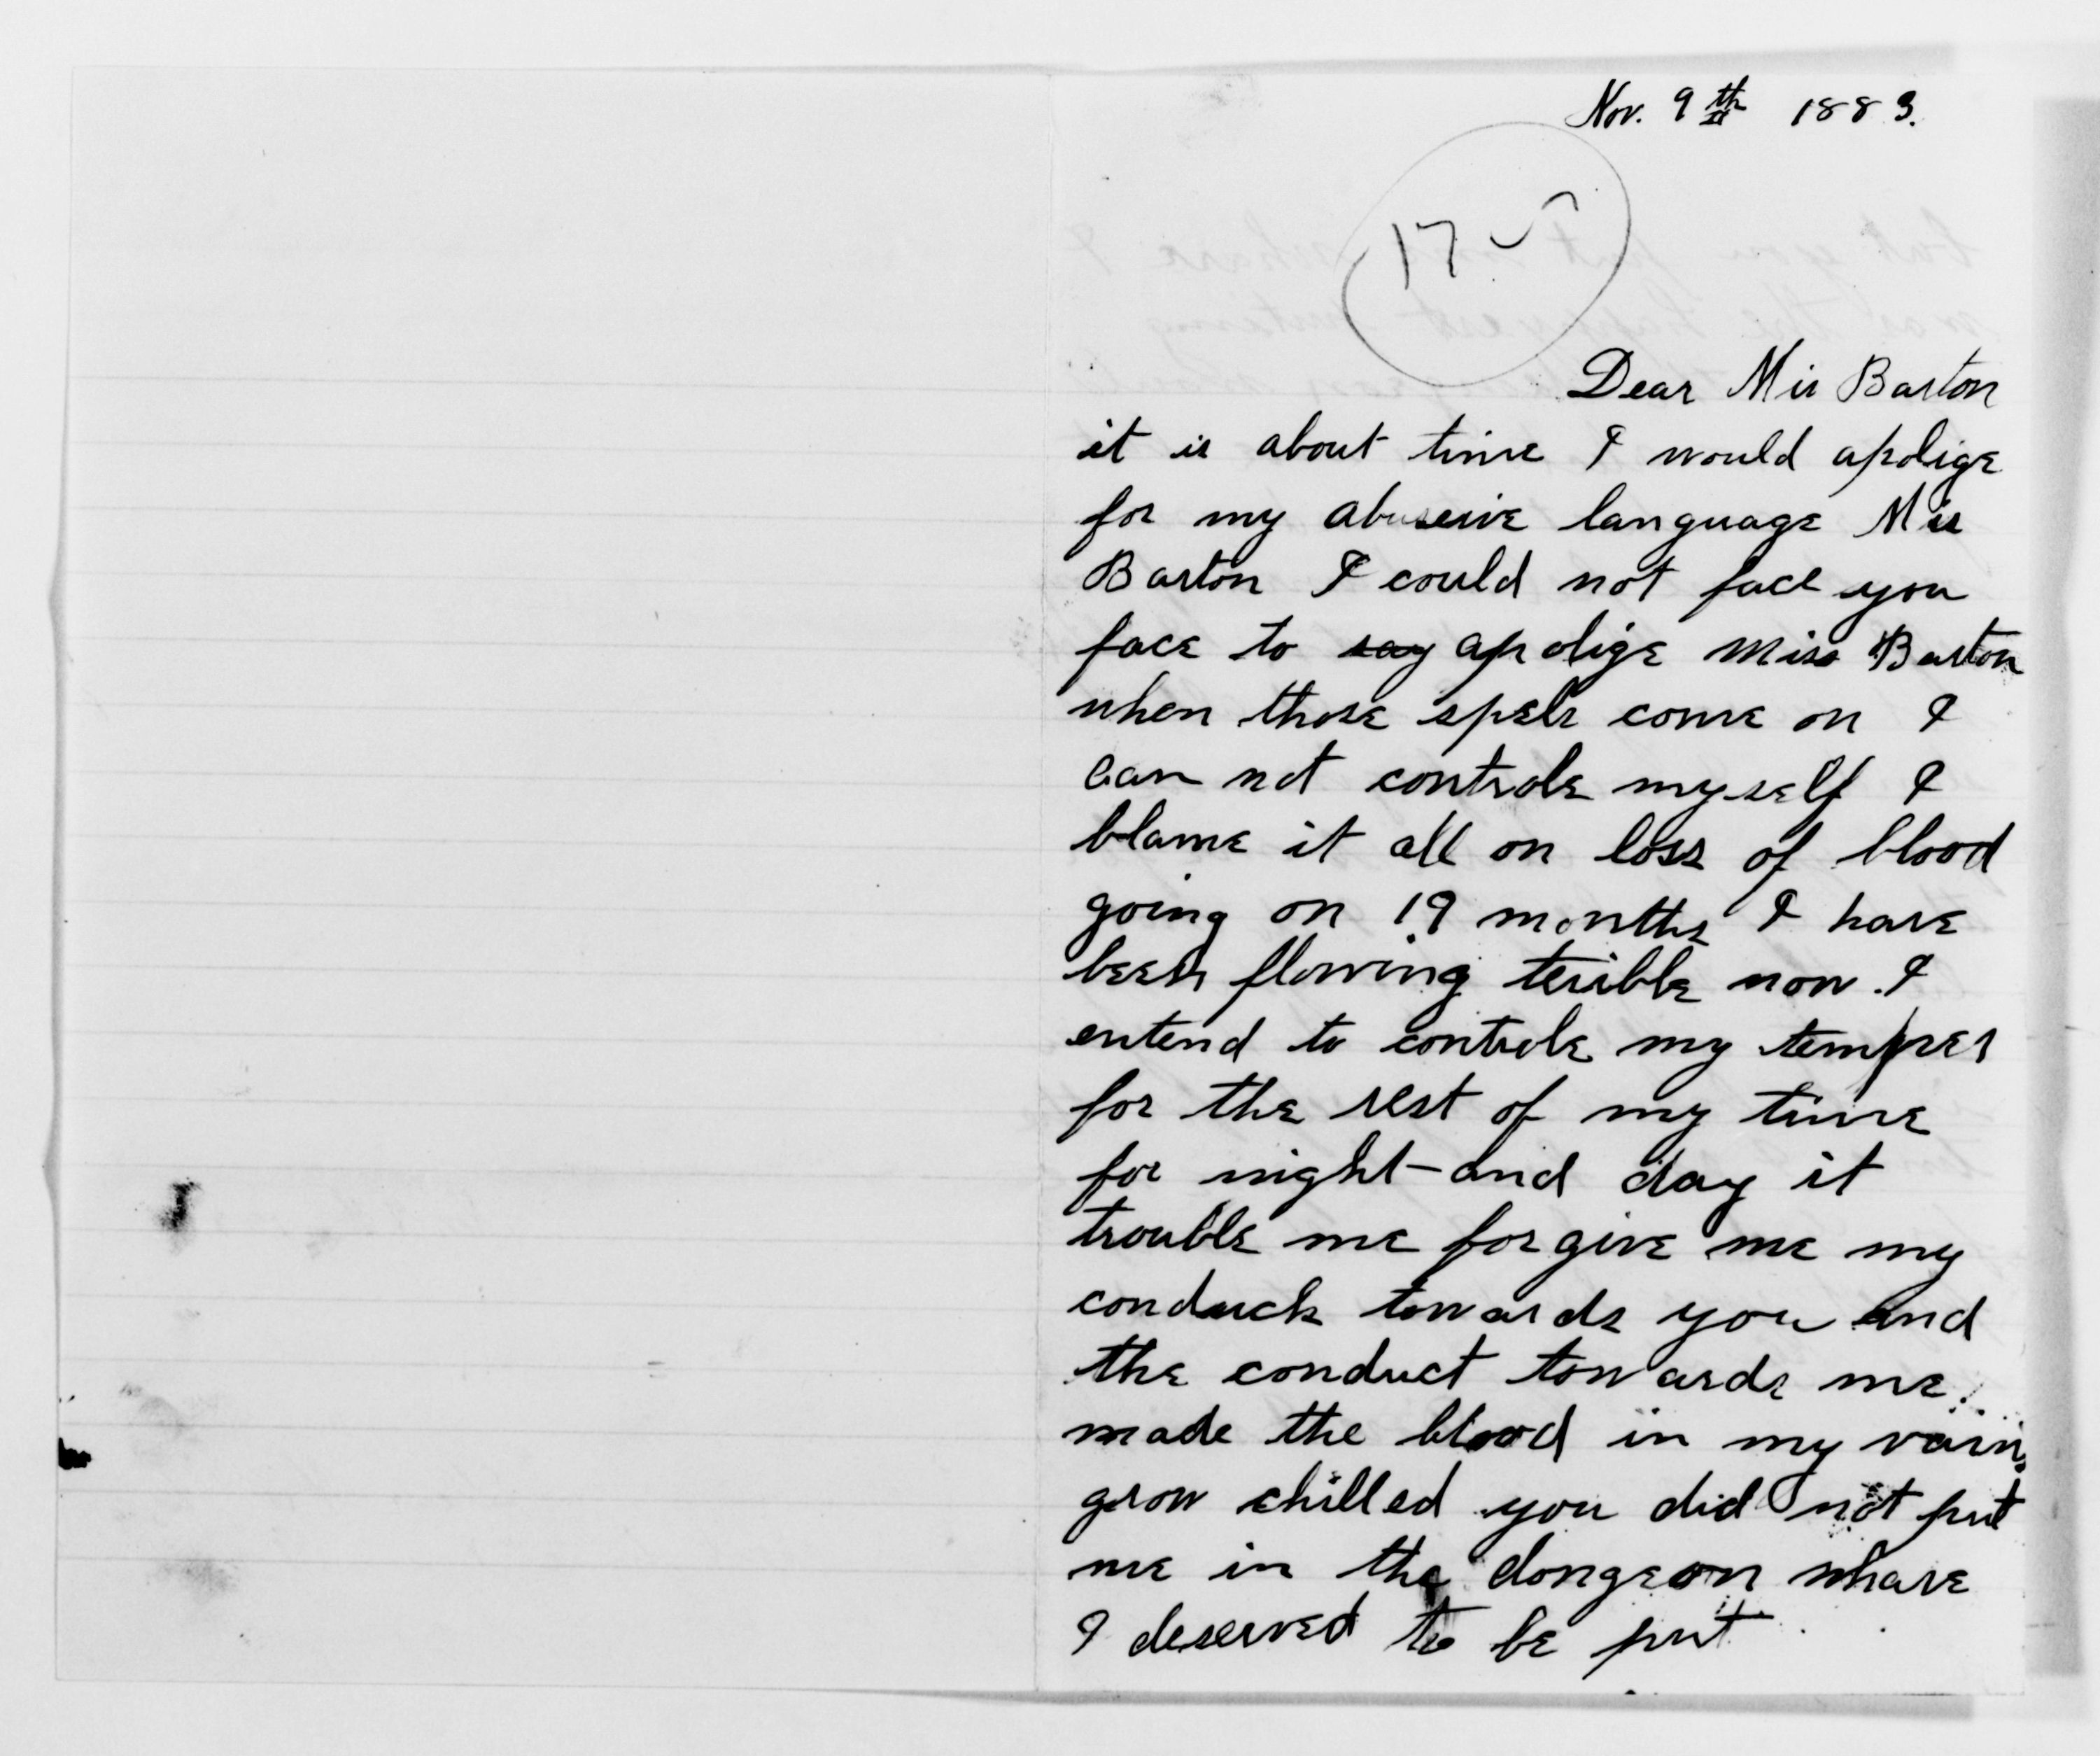 Nov. 9th 1883.
17
Dear Mis Barton
it is about time I would apolige
for my abuseive language Mis
Barton I could not face you
face to say apolige Miss Barton
when those spels come on I
can not controle myself I
blame it all on loss of blood
going on 19 months I have
been flowing terible now. I
entend to controle my temper
for the rest of my time
for night-and day it
trouble me forgive me my
conduck towards you and
the conduct towards me.
made the blood in my vains
grow chilled you did not put
me in the dongeon whare
I deserved to be put